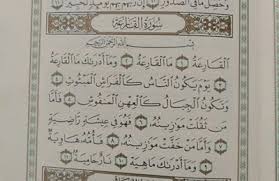 وَحُصِّلَ مَا فِي الصُّدُورِ ۝ إِنَّ رَبَّهُم بِهِمْ يَوْمَئِذٍ لَّخَبِيرٌ
سُورَةُ القَارِعَةِ
بِسْمِ اللَّهِ الرَّحْمَٰنِ الرَّحِيمِ
الْقَارِعَةُ ۝ مَا الْقَارِعَةُ ۝ وَمَا أَدْرَىٰكَ مَا الْقَارِعَةُ
۝ يَوْمَ يَكُونُ النَّاسُ كَالْفَرَاشِ الْمَبْثُوثِ ۝
وَتَكُونُ الْجِبَالُ كَالْعِهْنِ الْمَنفُوشِ ۝ فَأَمَّا
مَن ثَقُلَتْ مَوَٰزِينُهُ ۝ فَهُوَ فِي عِيشَةٍ رَّاضِيَةٍ
۝ وَأَمَّا مَنْ خَفَّتْ مَوَٰزِينُهُ ۝ فَأُمُّهُ هَاوِيَةٌ
۝ وَمَا أَدْرَىٰكَ مَا هِيَهْ ۝ نَارٌ حَامِيَةٌ